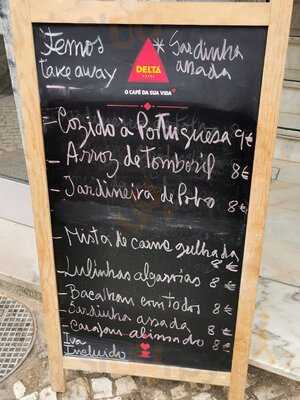 Temos
take away
*Sardinha
assada
DELTA
CAFÉS
O CAFÉ DA SUA VIDA
- Cozido à Portuguesa 9€
- Arroz de tomboril 8€
- Jardineira de Polvo 8€
- Mista de carne grelhada
8€
- Lulinhas algarvias 8€
- Bacalhau com todos 8€
- Sardinha assada 8€
- 8€
Iva
Incluido